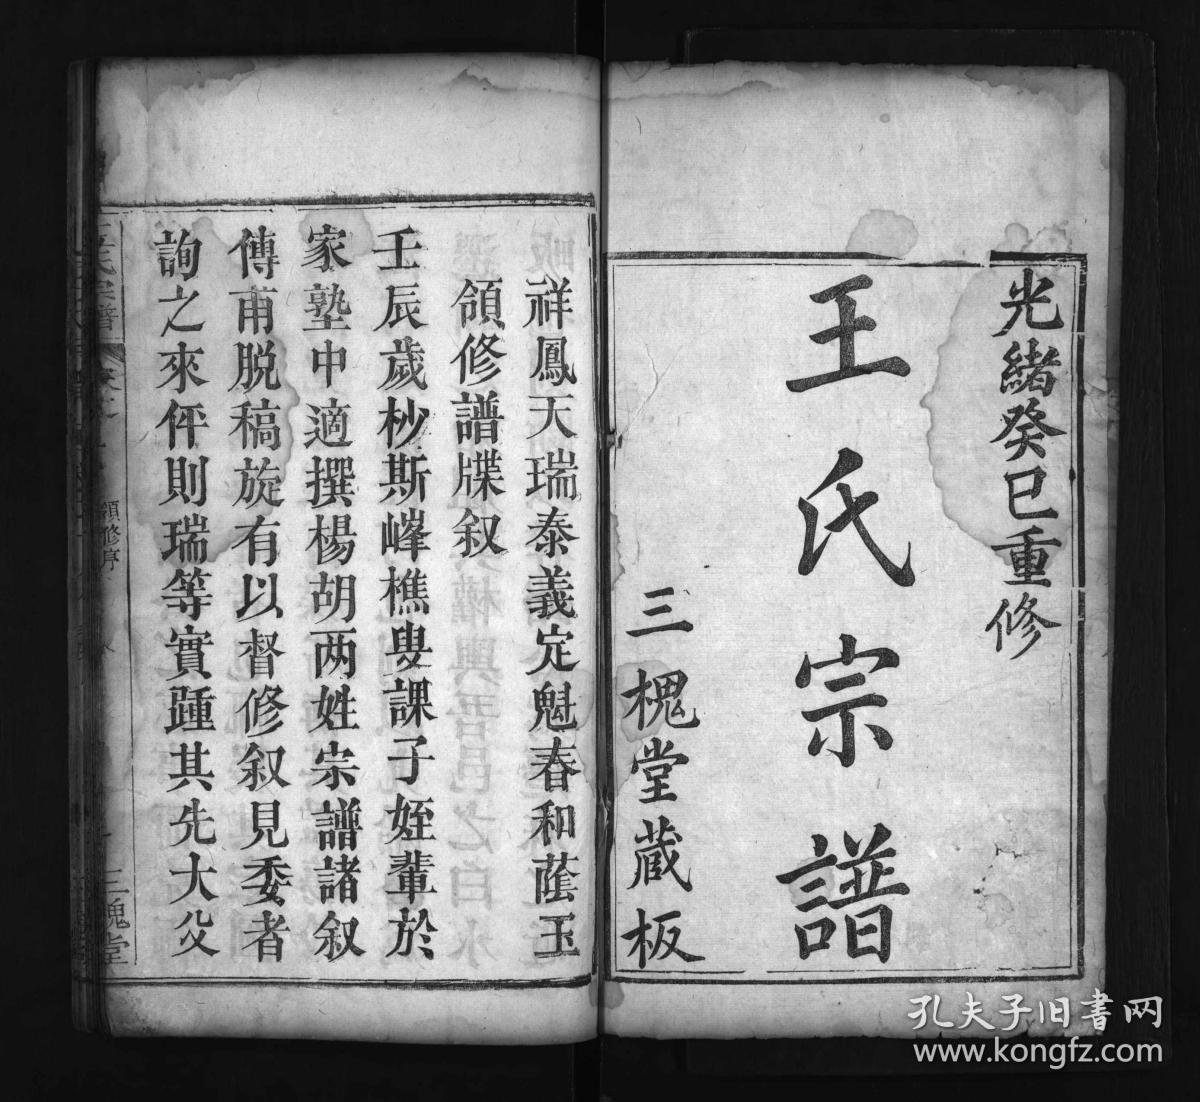 光緒癸巳重修
王氏宗譜
三槐堂藏板
祥鳳天瑞泰義定魁春和蔭玉
領修譜牒叙
壬辰歲杪斯峰樵叟課子姪輩於
家塾中適撰楊胡两姓宗譜諸叙
傳甫脱稿旋有以督修叙見委者
詢之來伻則瑞等實踵其先大父
王氏宗譜
領修序
三槐堂
孔夫子旧书网
www.kongfz.com